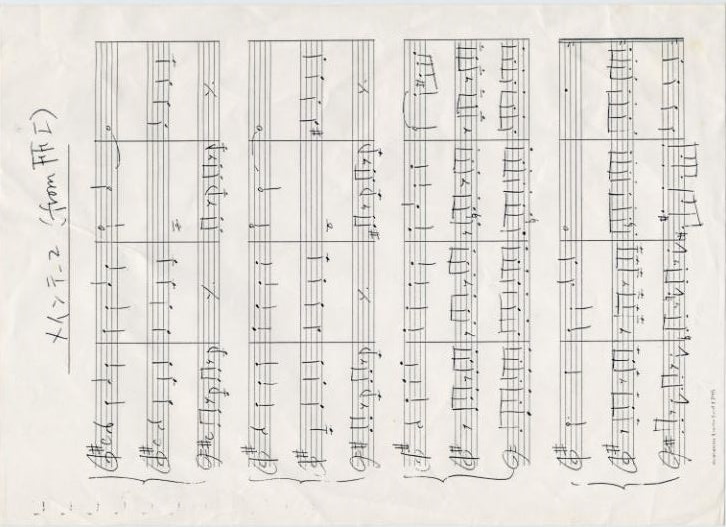 メインテーマ (from FF I)